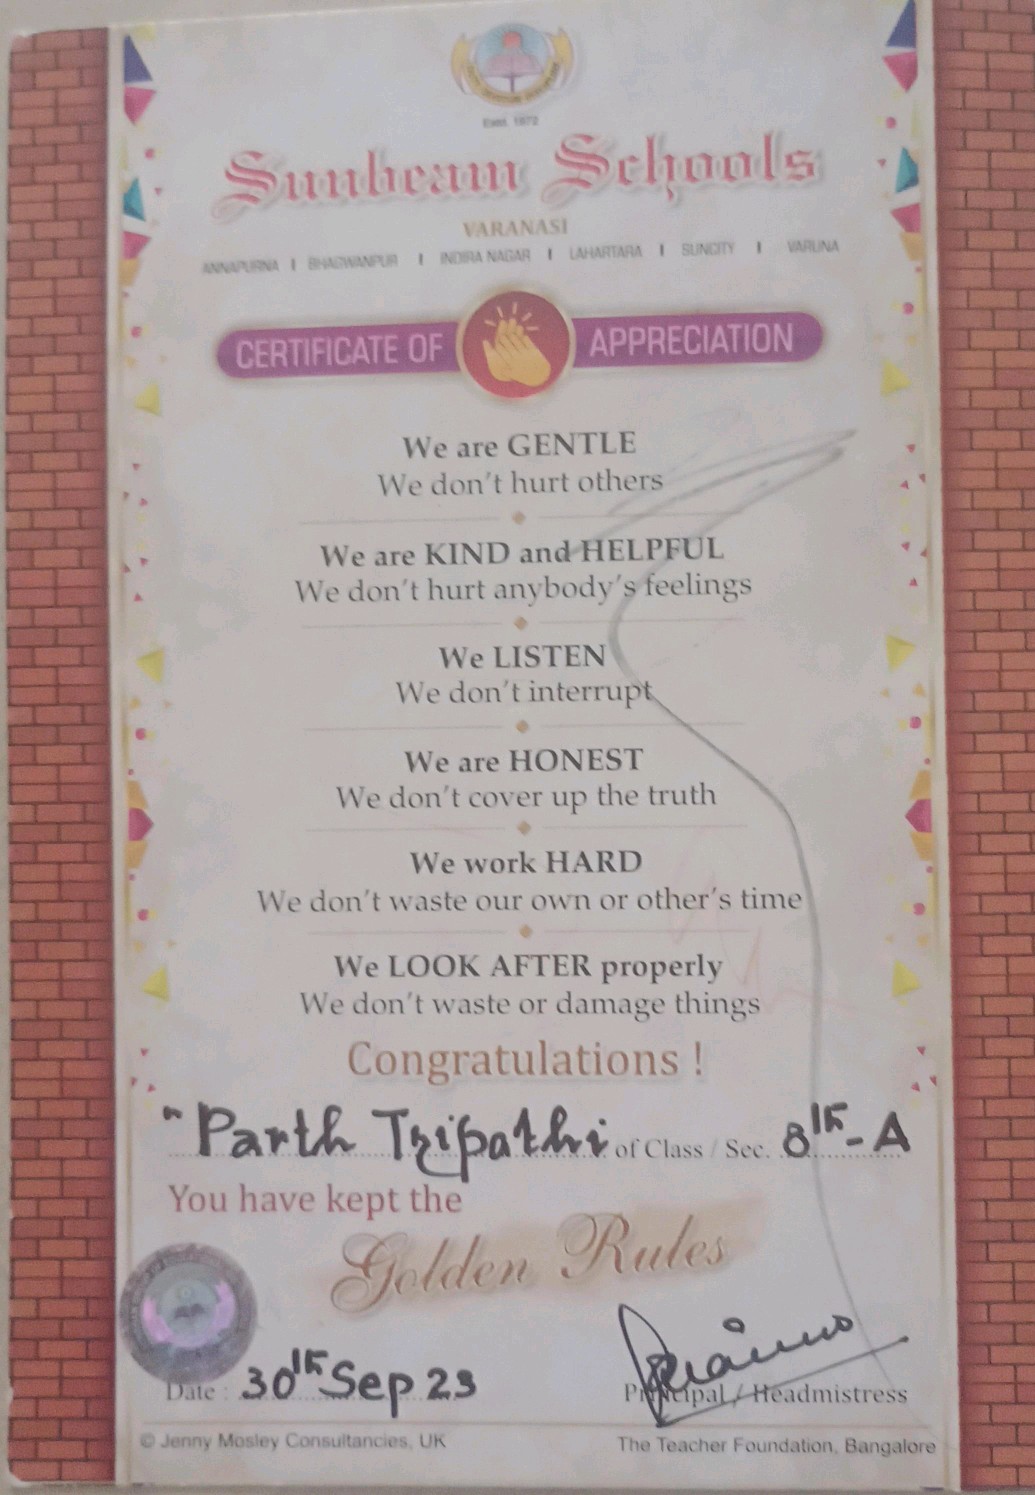 Estd. 1972
Sunbeam Schools
VARANASI
ANNAPURNA | BHAGWANPUR | INDIRA NAGAR | LAHARTARA | SUNCITY | VARUNA
CERTIFICATE OF APPRECIATION
We are GENTLE
We don't hurt others
We are KIND and HELPFUL
We don't hurt anybody's feelings
We LISTEN
We don't interrupt
We are HONEST
We don't cover up the truth
We work HARD
We don't waste our own or other's time
We LOOK AFTER properly
We don't waste or damage things
Congratulations !
"Parth Tripathi of Class / Sec. 8th-A
You have kept the
Golden Rules
Date : 30th Sep 23
Principal / Headmistress
© Jenny Mosley Consultancies, UK
The Teacher Foundation, Bangalore